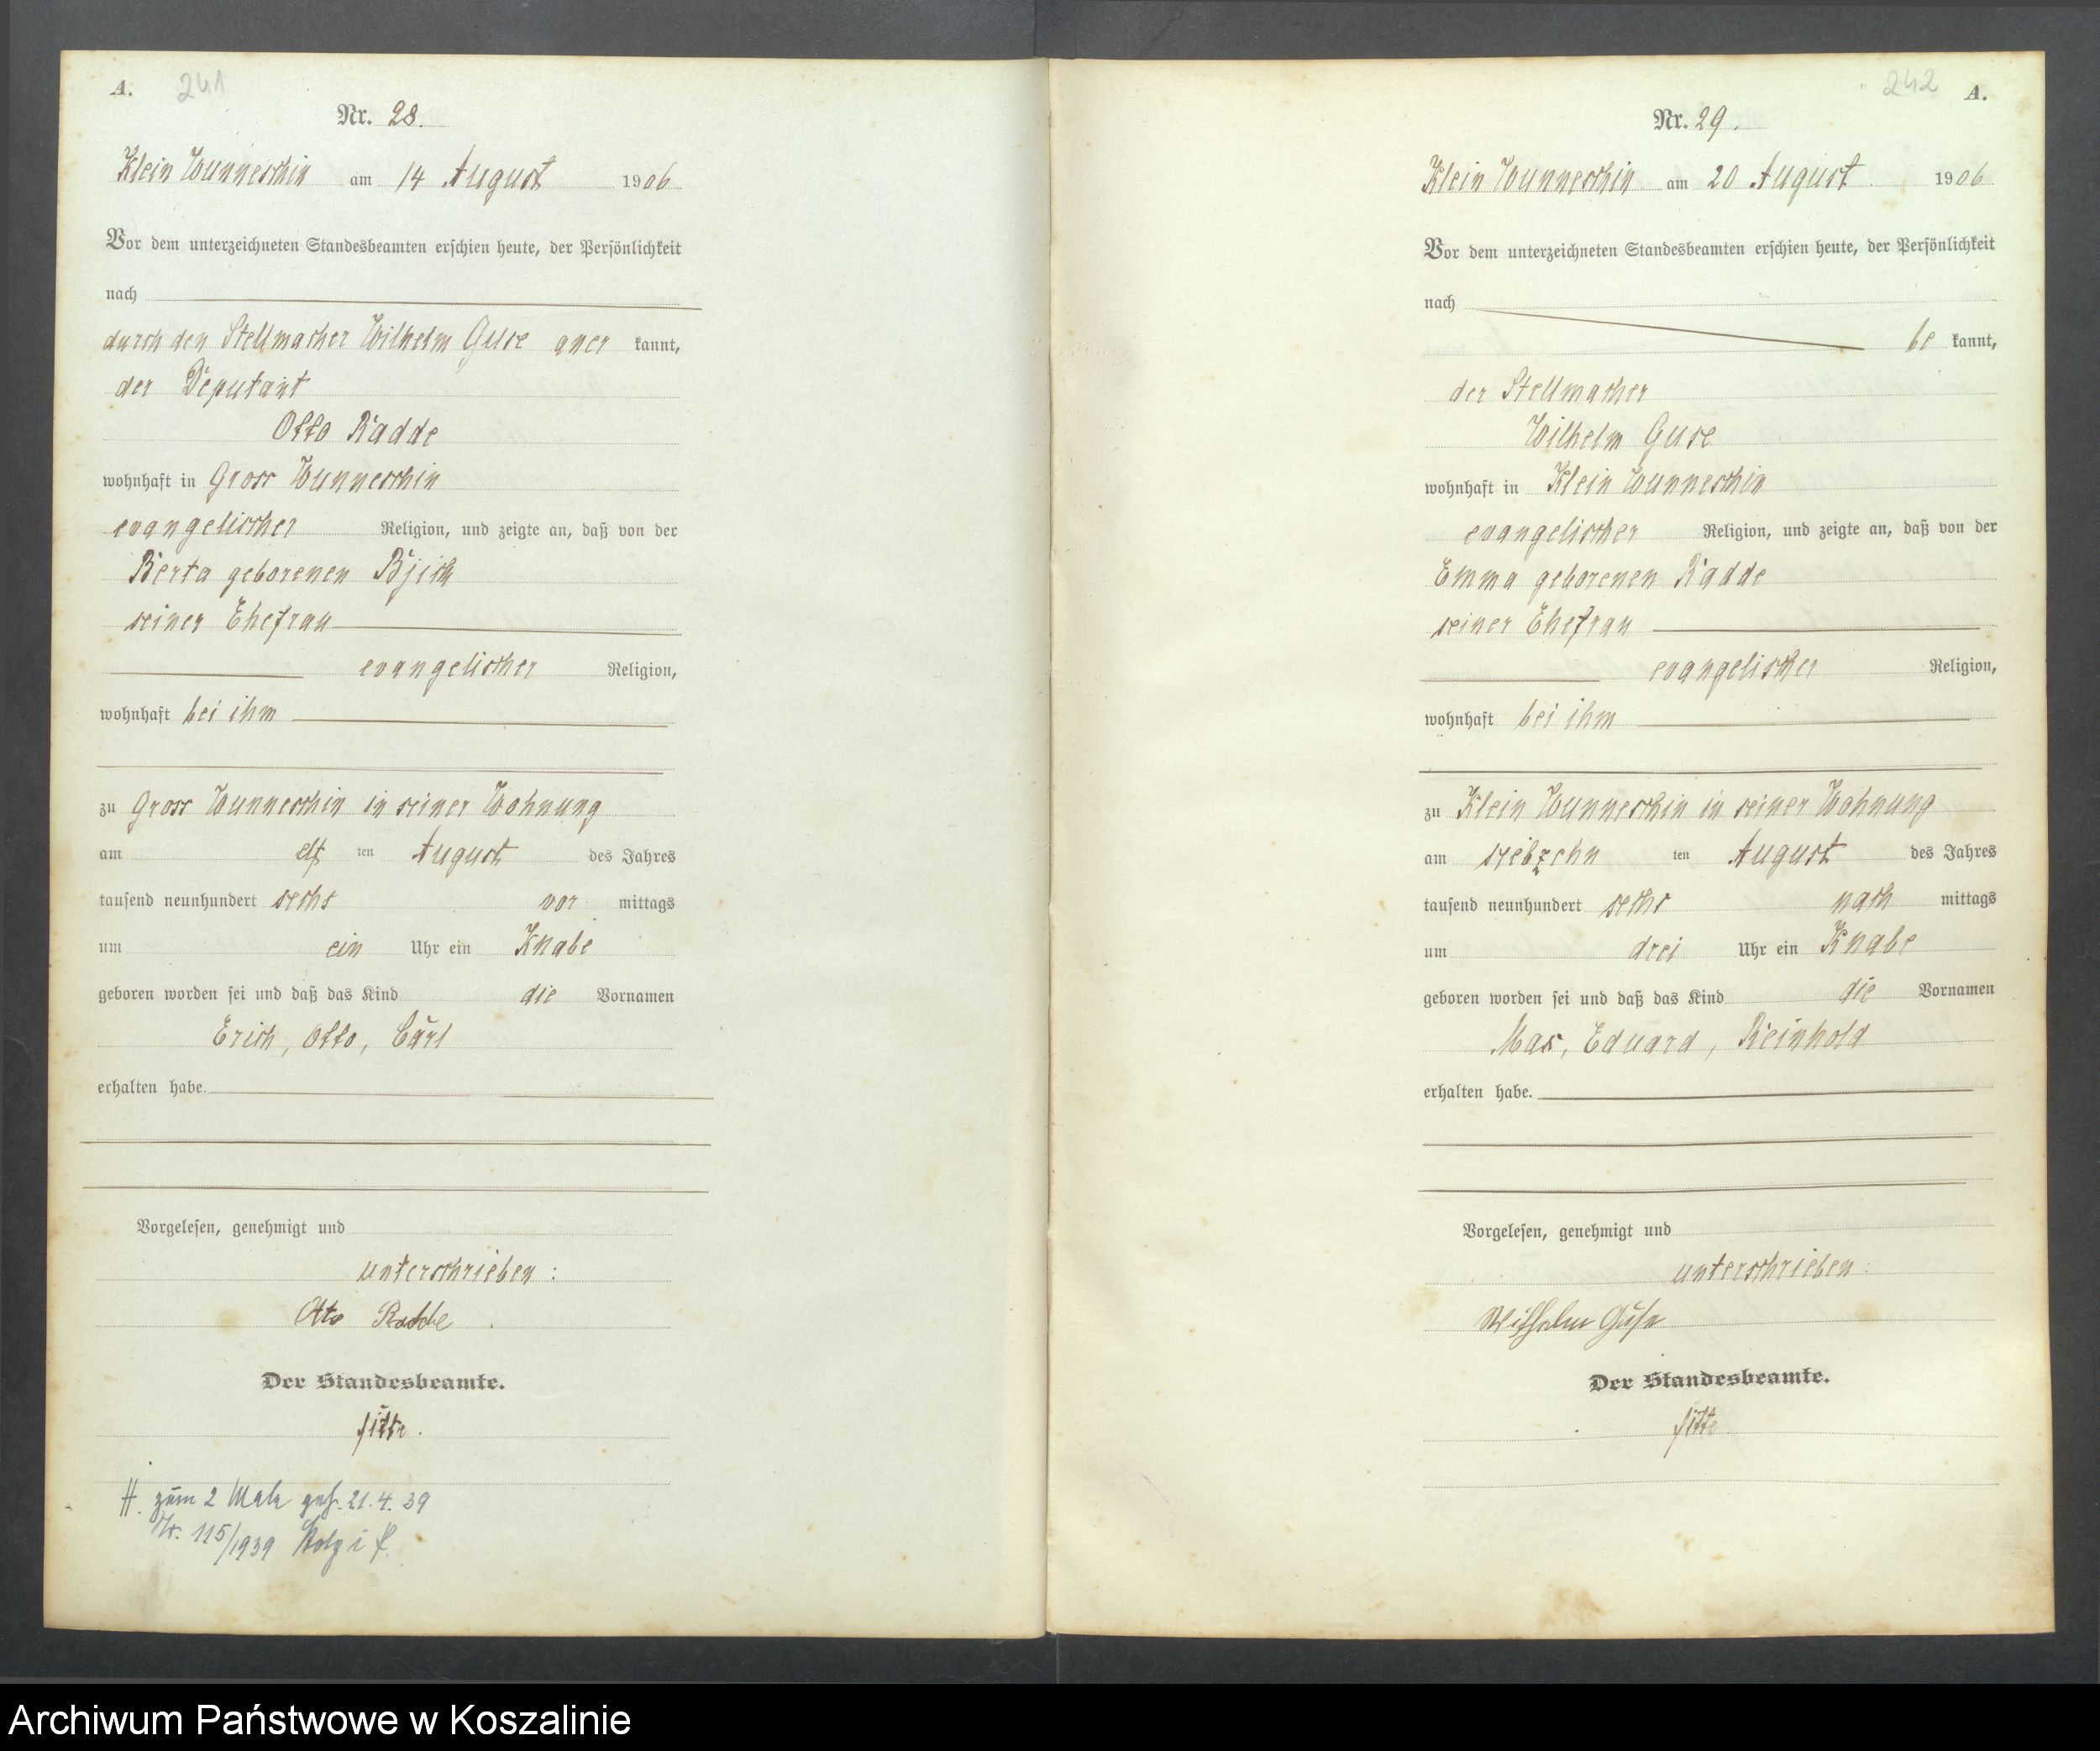 A. 241
Nr. 28.
Klein Wunneschin am 14 August 1906
Vor dem unterzeichneten Standesbeamten erschien heute, der Persönlichkeit
nach
durch den Stellmacher Wilhelm Guse aner kannt,
der Deputant
Otto Radde
wohnhaft in Gross Wunneschin
evangelischer Religion, und zeigte an, daß von der
Berta geborenen
seiner Ehefrau
evangelischer Religion,
wohnhaft bei ihm
zu Gross Wunneschin in seiner Wohnung
am elf ten August des Jahres
tausend neunhundert sechs vor mittags
um ein Uhr ein Knabe
geboren worden sei und daß das Kind die Vornamen
Erich, Otto, Carl
erhalten habe.
Vorgelesen, genehmigt und
unterschrieben:
Otto Radde
Der Standesbeamte.
H. zum 2 Male geh. 21.4.39
Nr. 115/1939 Stolp i P.
242 A.
Nr. 29.
Klein Wunneschin am 20 August 1906
Vor dem unterzeichneten Standesbeamten erschien heute, der Persönlichkeit
nach
be kannt,
der Stellmacher
Wilhelm Guse
wohnhaft in Klein Wunneschin
evangelischer Religion, und zeigte an, daß von der
Emma geborenen Radde
seiner Ehefrau
evangelischer Religion,
wohnhaft bei ihm
zu Klein Wunneschin in seiner Wohnung
am siebzehn ten August des Jahres
tausend neunhundert sechs nach mittags
um drei Uhr ein Knabe
geboren worden sei und daß das Kind die Vornamen
Max, Eduard, Reinhold
erhalten habe.
Vorgelesen, genehmigt und
unterschrieben:
Wilhelm Guse
Der Standesbeamte.
Archiwum Państwowe w Koszalinie